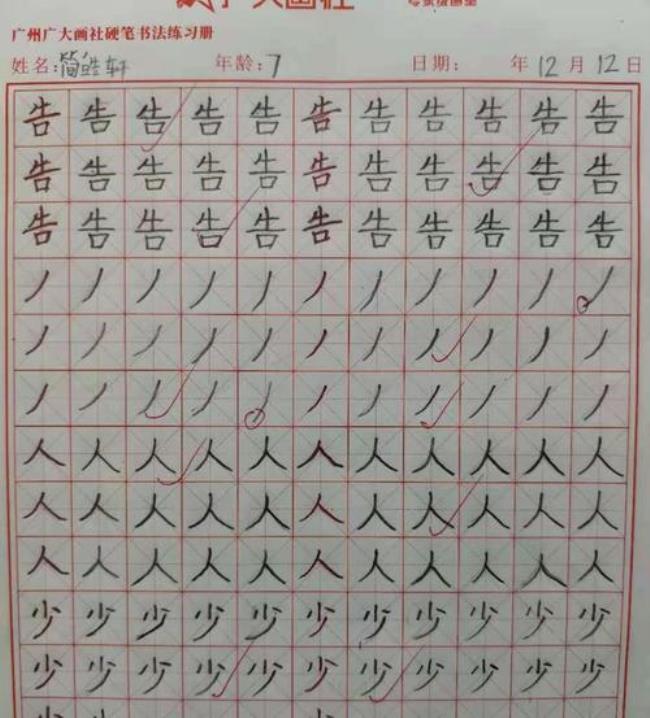 广州广大画社硬笔书法练习册
姓名:简皓轩 年龄:7 日期: 年12月12日
告告告告告告告告告告告
告告告告告告告告告告告
告告告告告告告告告告告
丿丿丿丿丿丿丿丿丿丿丿
丿丿丿丿丿丿丿丿丿丿丿
丿丿丿丿丿丿丿丿丿丿丿
人人人人人人人人人人人
人人人人人人人人人人人
人人人人人人人人人人人
少少少少少少少少少少少
少少少少少少少少少少少